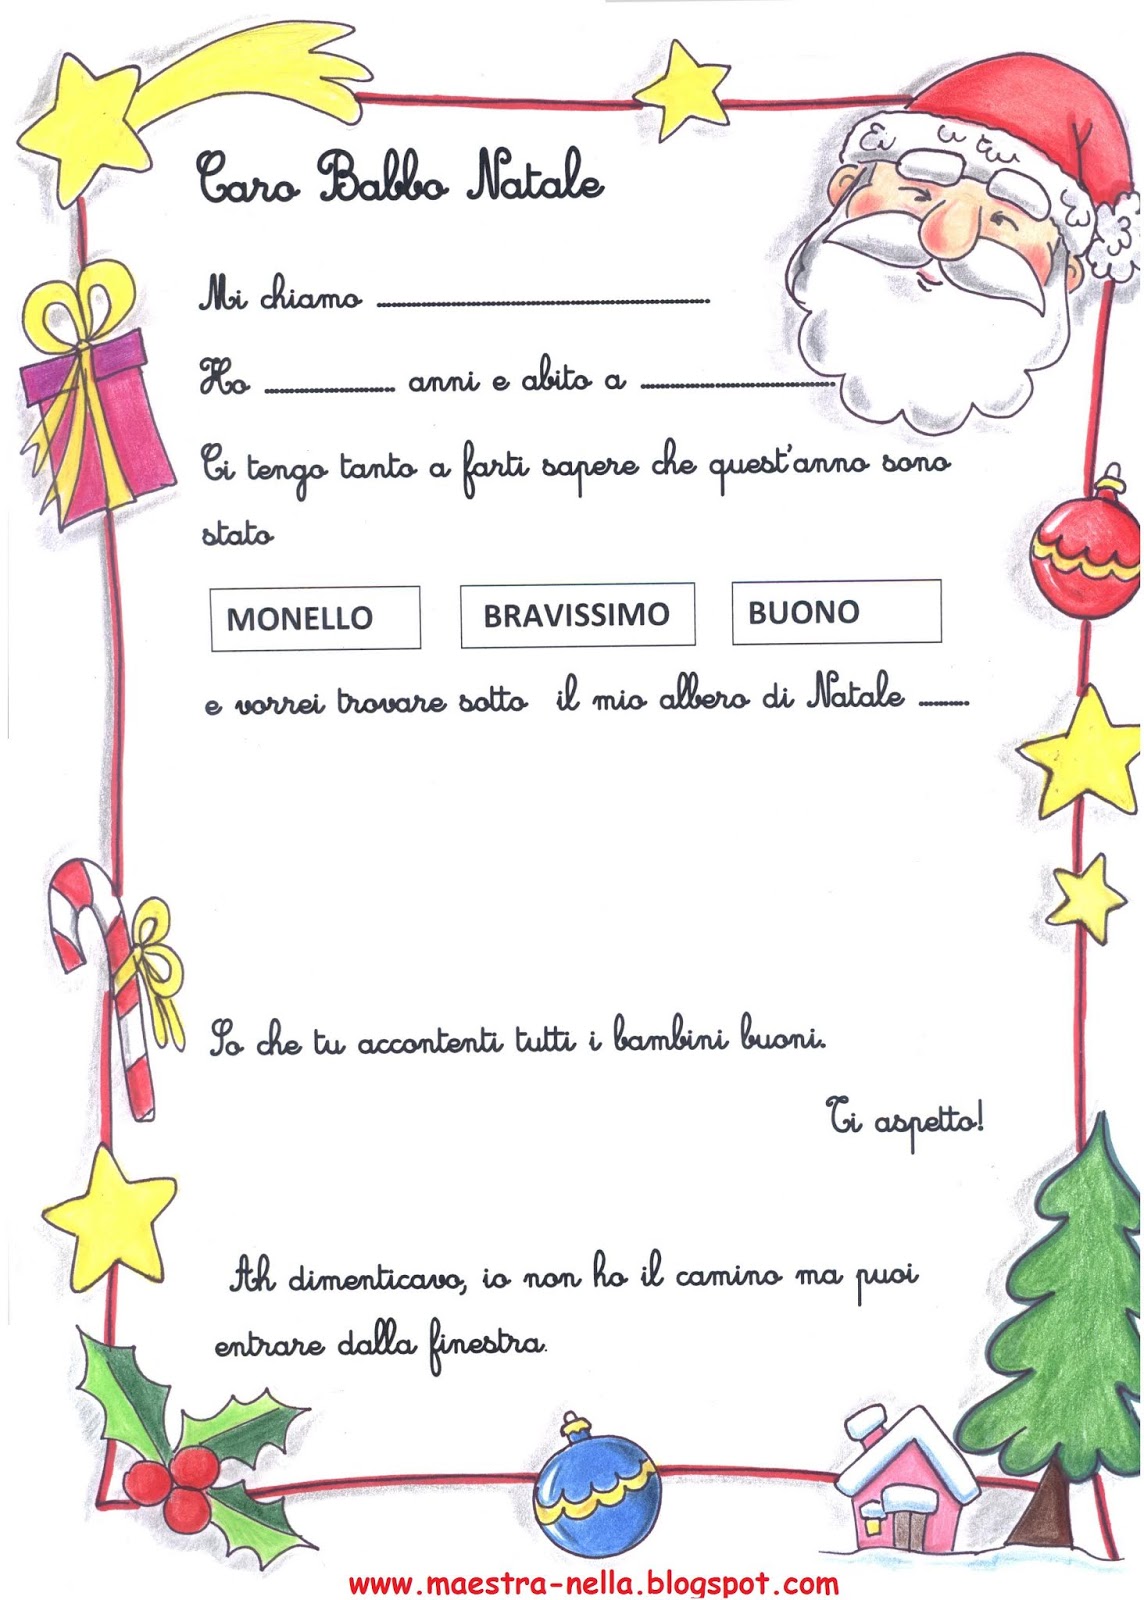 Caro Babbo Natale
Mi chiamo ........................
Ho ............ anni e abito a ..................
Ci tengo tanto a farti sapere che quest'anno sono
stato
MONELLO BRAVISSIMO BUONO
e vorrei trovare sotto il mio albero di Natale .......
So che tu accontenti tutti i bambini buoni.
Ti aspetto!
Ah dimenticavo, io non ho il camino ma puoi
entrare dalla finestra.
www.maestra-nella.blogspot.com